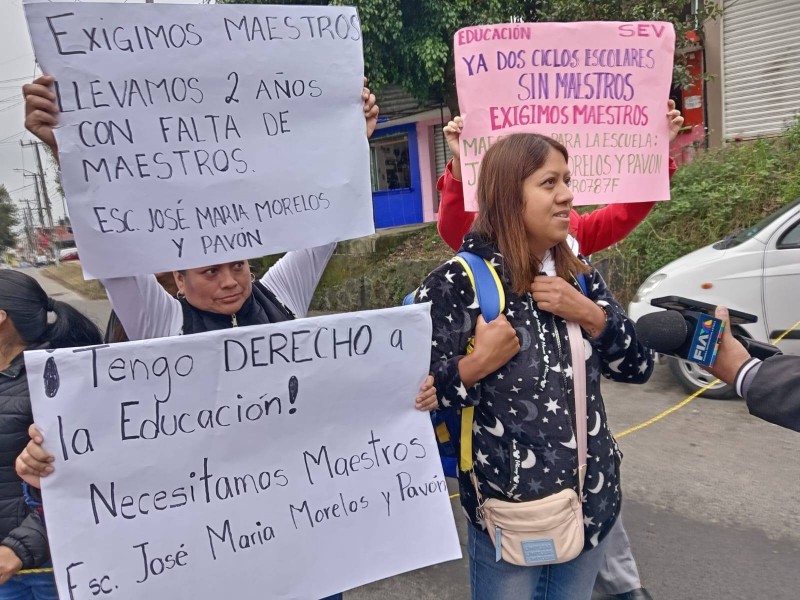 Exigimos maestros
llevamos 2 años
con falta de
maestros.
Esc. José María Morelos
y Pavón
EDUCACIÓN SEV
YA DOS CICLOS ESCOLARES
SIN MAESTROS
EXIGIMOS MAESTROS
PARA LA ESCUELA:
MORELOS Y PAVÓN
R0787F
¡Tengo DERECHO a
la Educación!
Necesitamos Maestros
Esc. José Maria Morelos y Pavón